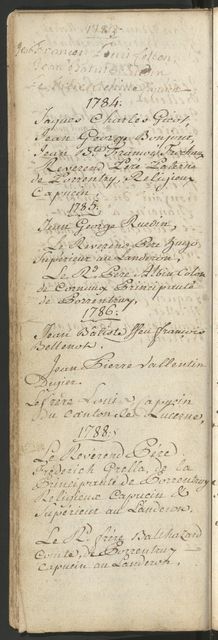 1783.
Jean François Louis
Jean Baptiste
1784.
Jaques Charles Girot,
Jean George Bonjour,
Jean Bte François Frochaux
Reverend Père
de Porrentruy, Religieux
Capucin.
1785.
Jean George Ruedin,
Le Reverend Père Hugo
Supérieur au Landeron,
Le Rd. Père Albin Colon
de Cornaux Principauté
de Porrentruy.
1786.
Jean Batiste ffeu François
Bellenot.
Jean Pierre Vallentin
Le frère Louis Capucin
du Canton de Lucerne,
1788.
Le Reverend Père
Frederich Prella, de la
Principauté de Porrentruy
Religieux Capucin &
Supérieur au Landeron.
Le Rd. frère Balthazard
Comte, de Porrentruy
Capucin au Landeron.